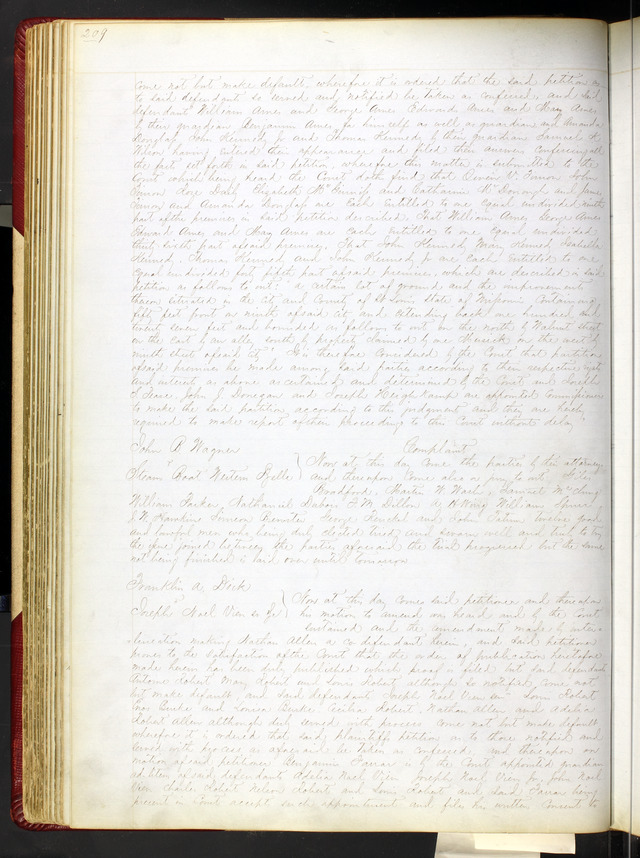 209
come not but make default wherefore it is ordered that the said petition as
to said defendants so served and notified be taken as confessed, and said
defendants William Ames and George Ames Edward Ames and Mary Ames
by their guardian Benjamin Ames, for himself as well as guardian and Amanda
Douglas John Kennedy and Thomas Kennedy by their guardian Samuel
having entered their appearance and filed their answer confessing all
the facts set forth in said petition, wherefore the matter is submitted to the
Court which being heard the Court doth find that John
Elizabeth and Catharine McDonough and James
and Amanda Douglas are each entitled to one equal undivided ninth
part of the premises in said petition described. That William Ames George Ames
Edward Ames and Mary Ames are each entitled to one equal undivided
thirty sixth part of said premises. That John Kennedy Isabella
Kennedy, Thomas Kennedy and John Kennedy Jr are each entitled to one
equal undivided forty fifth part of said premises, which are described in said
petition as follows to wit: a certain lot of ground and the improvements
thereon situated in the city and County of St Louis State of Missouri containing
fifty feet front on ninth of said city and extending back one hundred and
twenty seven feet and bounded as follows to wit on the north by Walnut street
on the east by an alley south by property claimed by one on the west by
ninth street of said city. It is therefore considered by the Court that partition
of said premises be made among said parties according to their respective rights
and interests as above ascertained and determined by the Court and
John J. Donegan and Joseph are appointed Commissioners
to make the said partition according to this judgment and they are hereby
required to make report of their proceeding to this Court without delay
John B Wagner
vs
Steam Boat Western Belle
Complaint
Now at this day come the parties by their attorneys
and thereupon come also a jury to wit,
Bradford, Martin W. Samuel McClung
William Parker, Nathaniel F M. Dillon William
J. W. Hawkins Simeon George and John twelve good
and lawful men who being duly elected tried and sworn well and truly to try
the issue joined between the parties aforesaid the trial progressed but the same
not being finished is laid over until tomorrow
Franklin A Dick
vs
Joseph Noel Vien Sr &c
Now at this day comes said petitioner and thereupon
his motion to amend was heard and by the Court
sustained and the amendment made by inter-
lineation making Nathan Allen a co defendant herein, and said petitioner
proves to the satisfaction of the Court that the order of publication heretofore
made herein has been duly published which proof is filed but said defendants
Antoine Robert Mary Robert and Louis Robert although so notified come not
but make default, and said defendants Joseph Noel Vien Sen Robert
Burke and Louisa Burke, Cecilia Robert, Nathan Allen and Adelia
Robert Allen although duly served with process come not but made default
wherefore it is ordered that said plaintiffs petition as to those notified and
served with process as aforesaid be taken as confessed, and thereupon on
motion of said petitioner Benjamin Farrar is by the Court appointed guardian
ad litem of said defendants Adelia Noel Vien Joseph Noel Vien Jr, John Noel
Vien Charles Robert Nelson Robert and Louis Robert and said Farrar being
present in Court accepts such appointment and files his written consent to